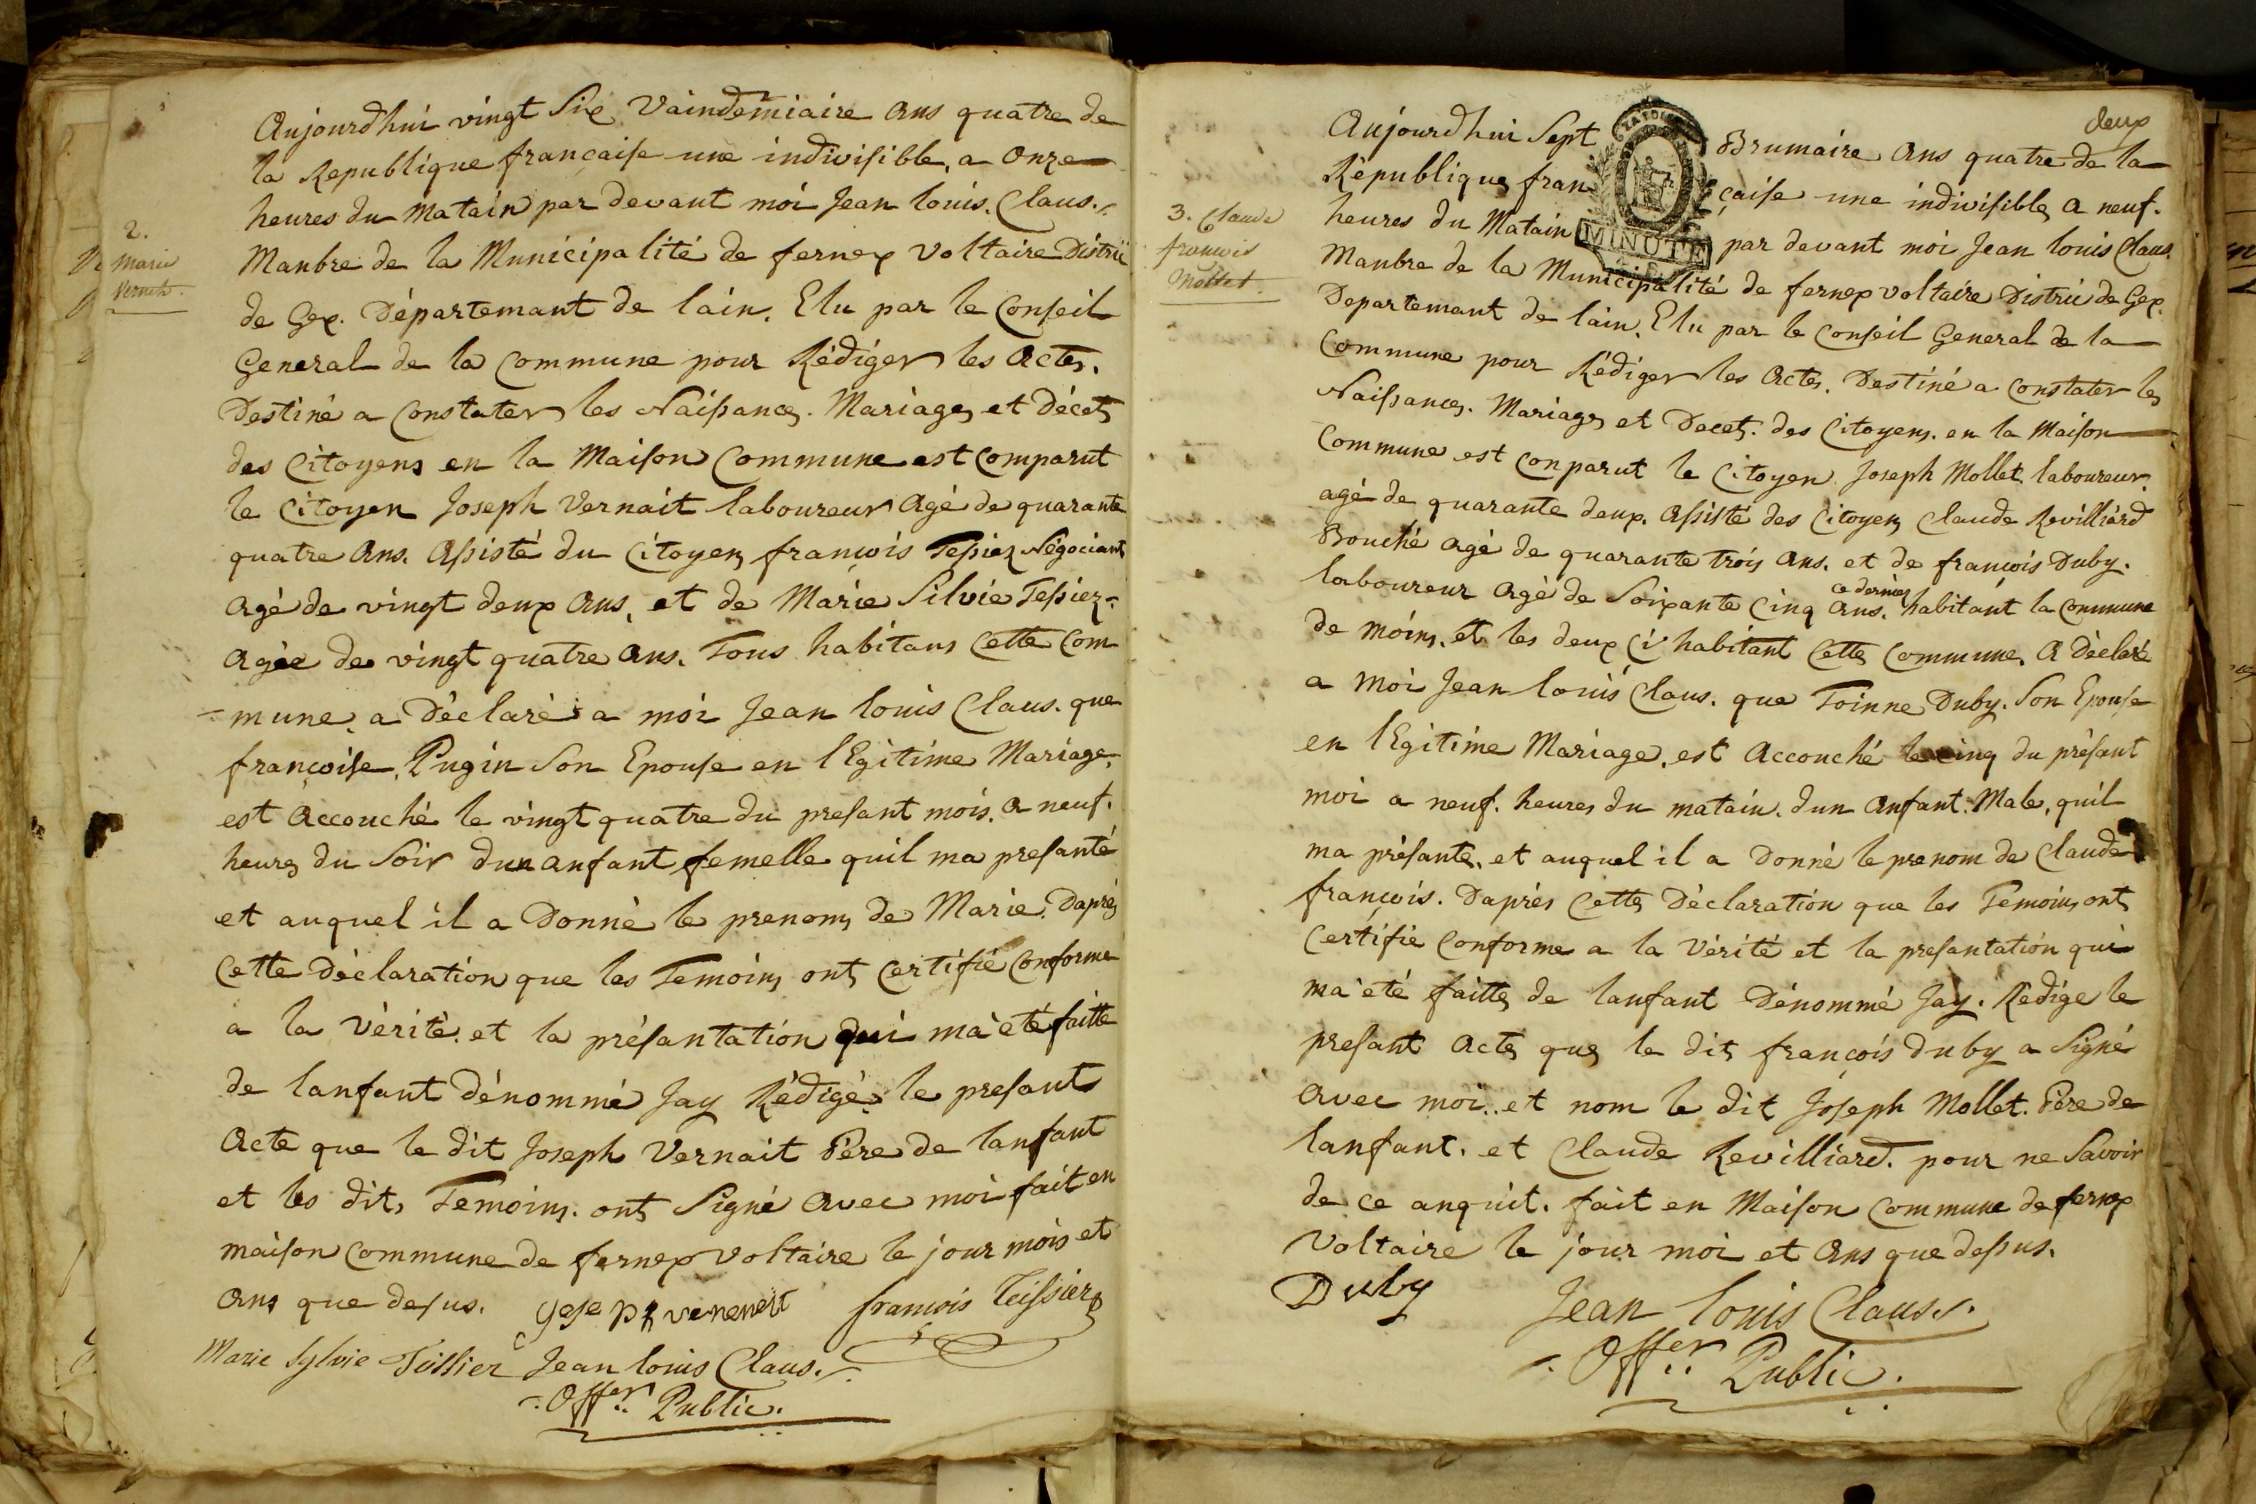 2.
Marie
Vernet.
Aujourdhui vingt Six Vaindemiaire ans quatre de
la Republique francaise une indivisible, a onze
heures du Matain par devant moi Jean louis Claus.
Manbre de la Municipalité de fernex Voltaire Distric
de Gex. Département de lain. Elu par le Conseil
General de la Commune pour Rédiger les Actes.
Destiné a Constater les Naissances. Mariages et Décets
des Citoyens en la Maison Commune est Comparut
le Citoyen Joseph Vernait laboureur Agé de quarante
quatre Ans. Assisté du Citoyen françois Tessiez Négociant
Agé de vingt deux Ans, et de Marie Silvie Tessiez.
Agée de vingt quatre Ans. Tous habitans Cette Com
mune, a Déclaré a moi Jean louis Claus. que
françoise Pugin Son Epouse en lEgitime Mariage,
est Accouché le vingt quatre du presant mois. a neuf.
heures du Soir dun anfant femelle quil ma presanté
et auquel il a Donné le prenom de Marie. Daprés
Cette Déclaration que les Temoins ont Certifié Conforme
a la Vérité. et la présantation qui ma été faitte
de lanfant dénommé Jay Rédigé le presant
Acte que le dit Joseph Vernait Père de lanfant
et les dits Temoins. ont Signé Avec moi fait en
maison Commune de fernex Voltaire le jour mois et
Ans que desus.
françois Teissier
Marie Sylvie Teissier Jean louis Claus.
Offer. Public.
deux
3. Claude
françois
Mollet.
Aujourdhui Sept Brumaire Ans quatre de la
République française une indivisible, a neuf.
heures du Matain par devant moi Jean louis Claus.
MINUTE
Manbre de la Municipalité de fernex voltaire Distric de Gex.
Departemant de lain. Elu par le Conseil General de la
Commune pour Rédiger les Actes. Destiné a Constater les
Naissances. Mariages et Decets. des Citoyens. en la Maison
Commune est Conparut le Citoyen Joseph Mollet. laboureur.
agé de quarante deux. Assisté des Citoyens Claude Revilliard
Bouché agé de quarante trois Ans. et de françois Duby.
laboureur agé de Soixante Cinq Ans. ce dernier habitant la Commune
de Moins. et les deux Ci habitant Cette Commune. A Déclaré
a Moi Jean louis Claus. que Toinne Duby. Son Epouse
en lEgitime Mariage, est Accouché le cinq du présant
moi a neuf. heures du matain. dun anfant. Male, quil
ma présanté. et auquel il a Donné le prenom de Claude
françois. Daprés Cette Déclaration que les Temoins ont
Certifié Conforme a la Vérité et la presantation qui
ma été faitte de lanfant Dénommé Jay. Rédige le
presant Acte que le dit françois Duby a Signé
avec moi. et nom le dit Joseph Mollet. Père de
lanfant. et Claude Revilliard. pour ne Savoir
de ce anquit. fait en Maison Commune de fernex
Voltaire le jour moi et Ans que dessus.
Duby Jean louis Claus.
Offer. Public.